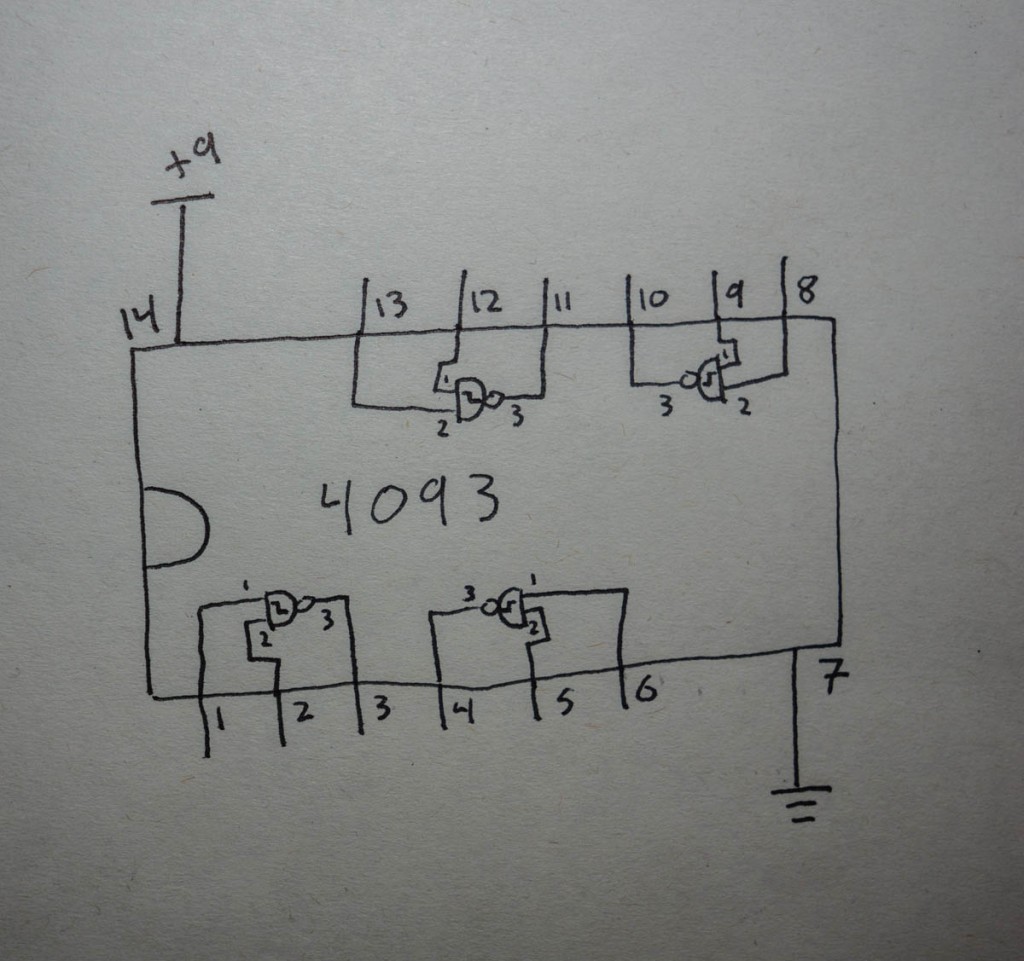 +9
14 13 12 11 10 9 8
1 1
2 3 3 2
4093
1 3 1
2 3 2
1 2 3 4 5 6 7